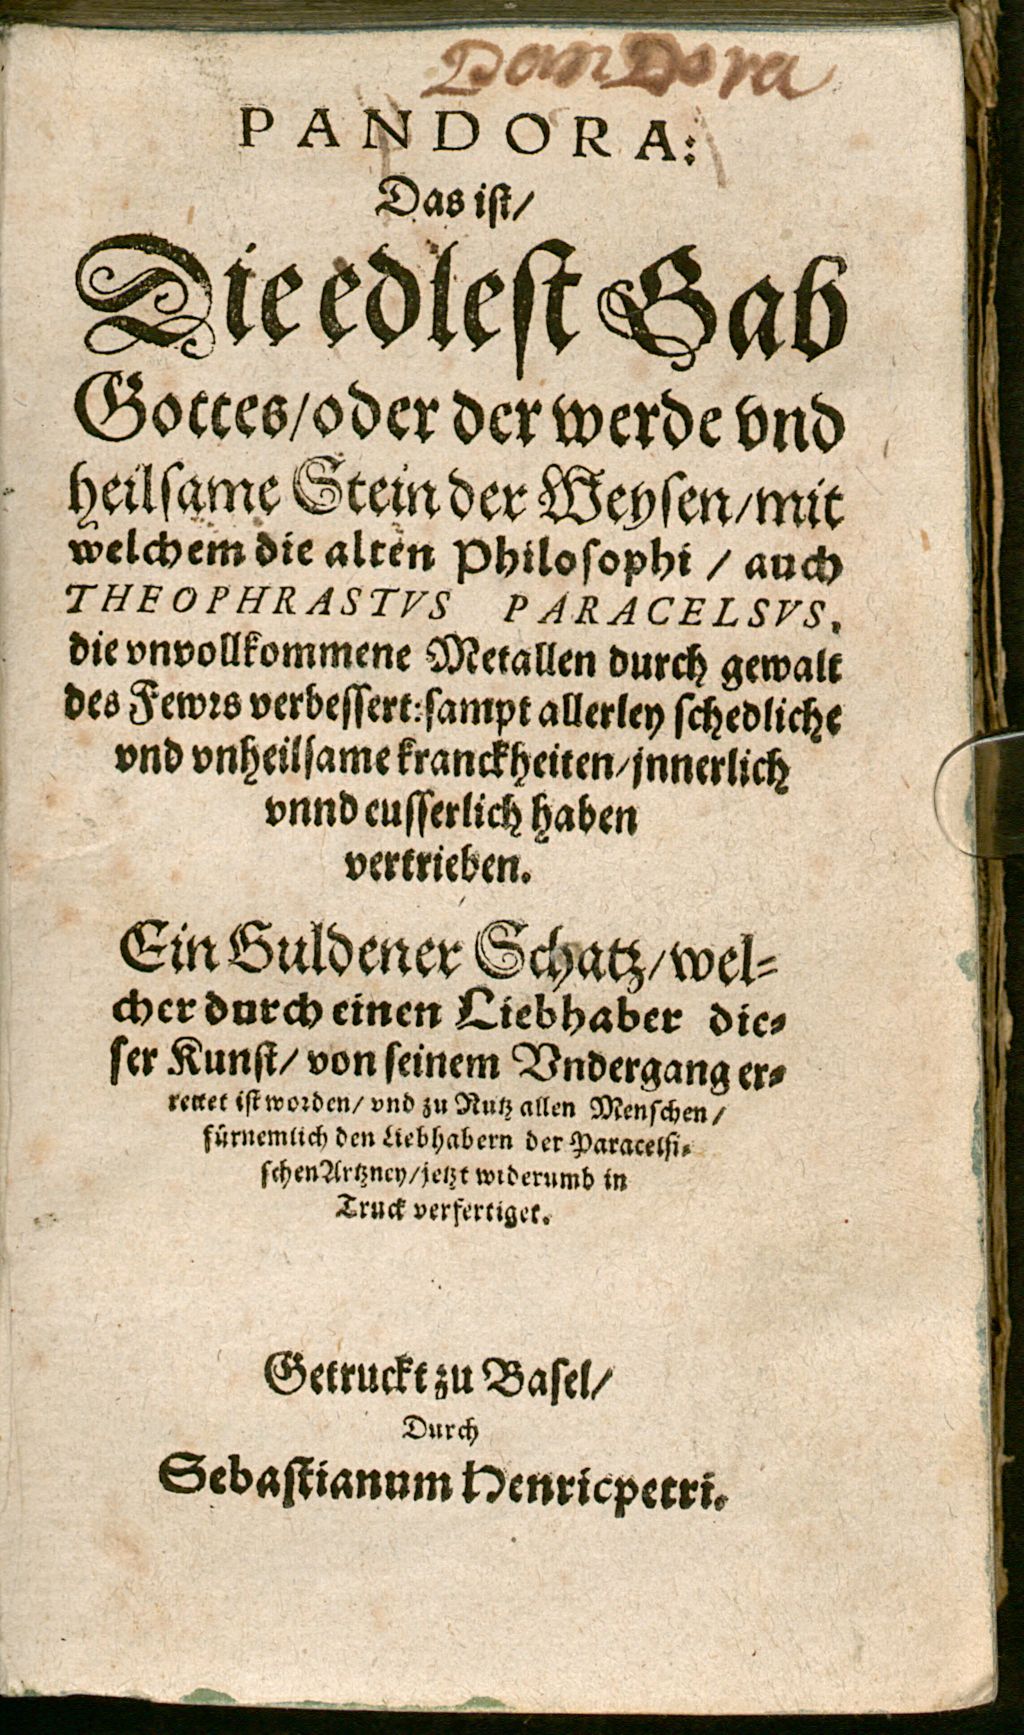 Pandora
PANDORA:
Das ist/
Die edlest Gab
Gottes/oder der werde vnd
heilsame Stein der Weysen/mit
welchem die alten Philosophi / auch
THEOPHRASTVS PARACELSVS,
die vnvollkommene Metallen durch gewalt
des Fewrs verbessert: sampt allerley schedliche
vnd vnheilsame kranckheiten/jnnerlich
vnnd eusserlich haben
vertrieben.
Ein Guldener Schatz/wel-
cher durch einen Liebhaber die-
ser Kunst/ von seinem Vndergang er-
rettet ist worden/ vnd zu Nutz allen Menschen/
fürnemlich den Liebhabern der Paracelsi-
schen Artzney/jetzt widerumb in
Truck verfertiget.
Getruckt zu Basel/
Durch
Sebastianum Henricpetri.